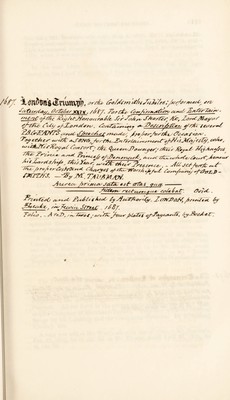 1687. London's Triumph, or the Goldsmiths Jubilee; performed, on
Saturday, October XXIX, 1687. For the Confirmation and Entertain-
ment of the Right Honourable Sir John Shorter, Kt, Lord Mayor
of the City of London. Containing a Description of the several
PAGEANTS, and Speeches made, proper for the Occasion.
Together with a SONG for the Entertainment of His Majesty, who,
with His Royal Consort, the Queen Dowager, their Royal Highnesses
the Prince and Princess of Denmark, and the whole Court, honour
his Lordship, this Year, with their Presence. - All set forth at
the proper Costs and Charges of the Worshipful Company of GOLD-
SMITHS. - By M. TAUBMAN.
Aurea prima sata est ætas, quæ
fidem rectumque colebat. Ovid.
Printed and Published by Authority. LONDON, printed by
1687.
Folio, with four plates of Pageants, by